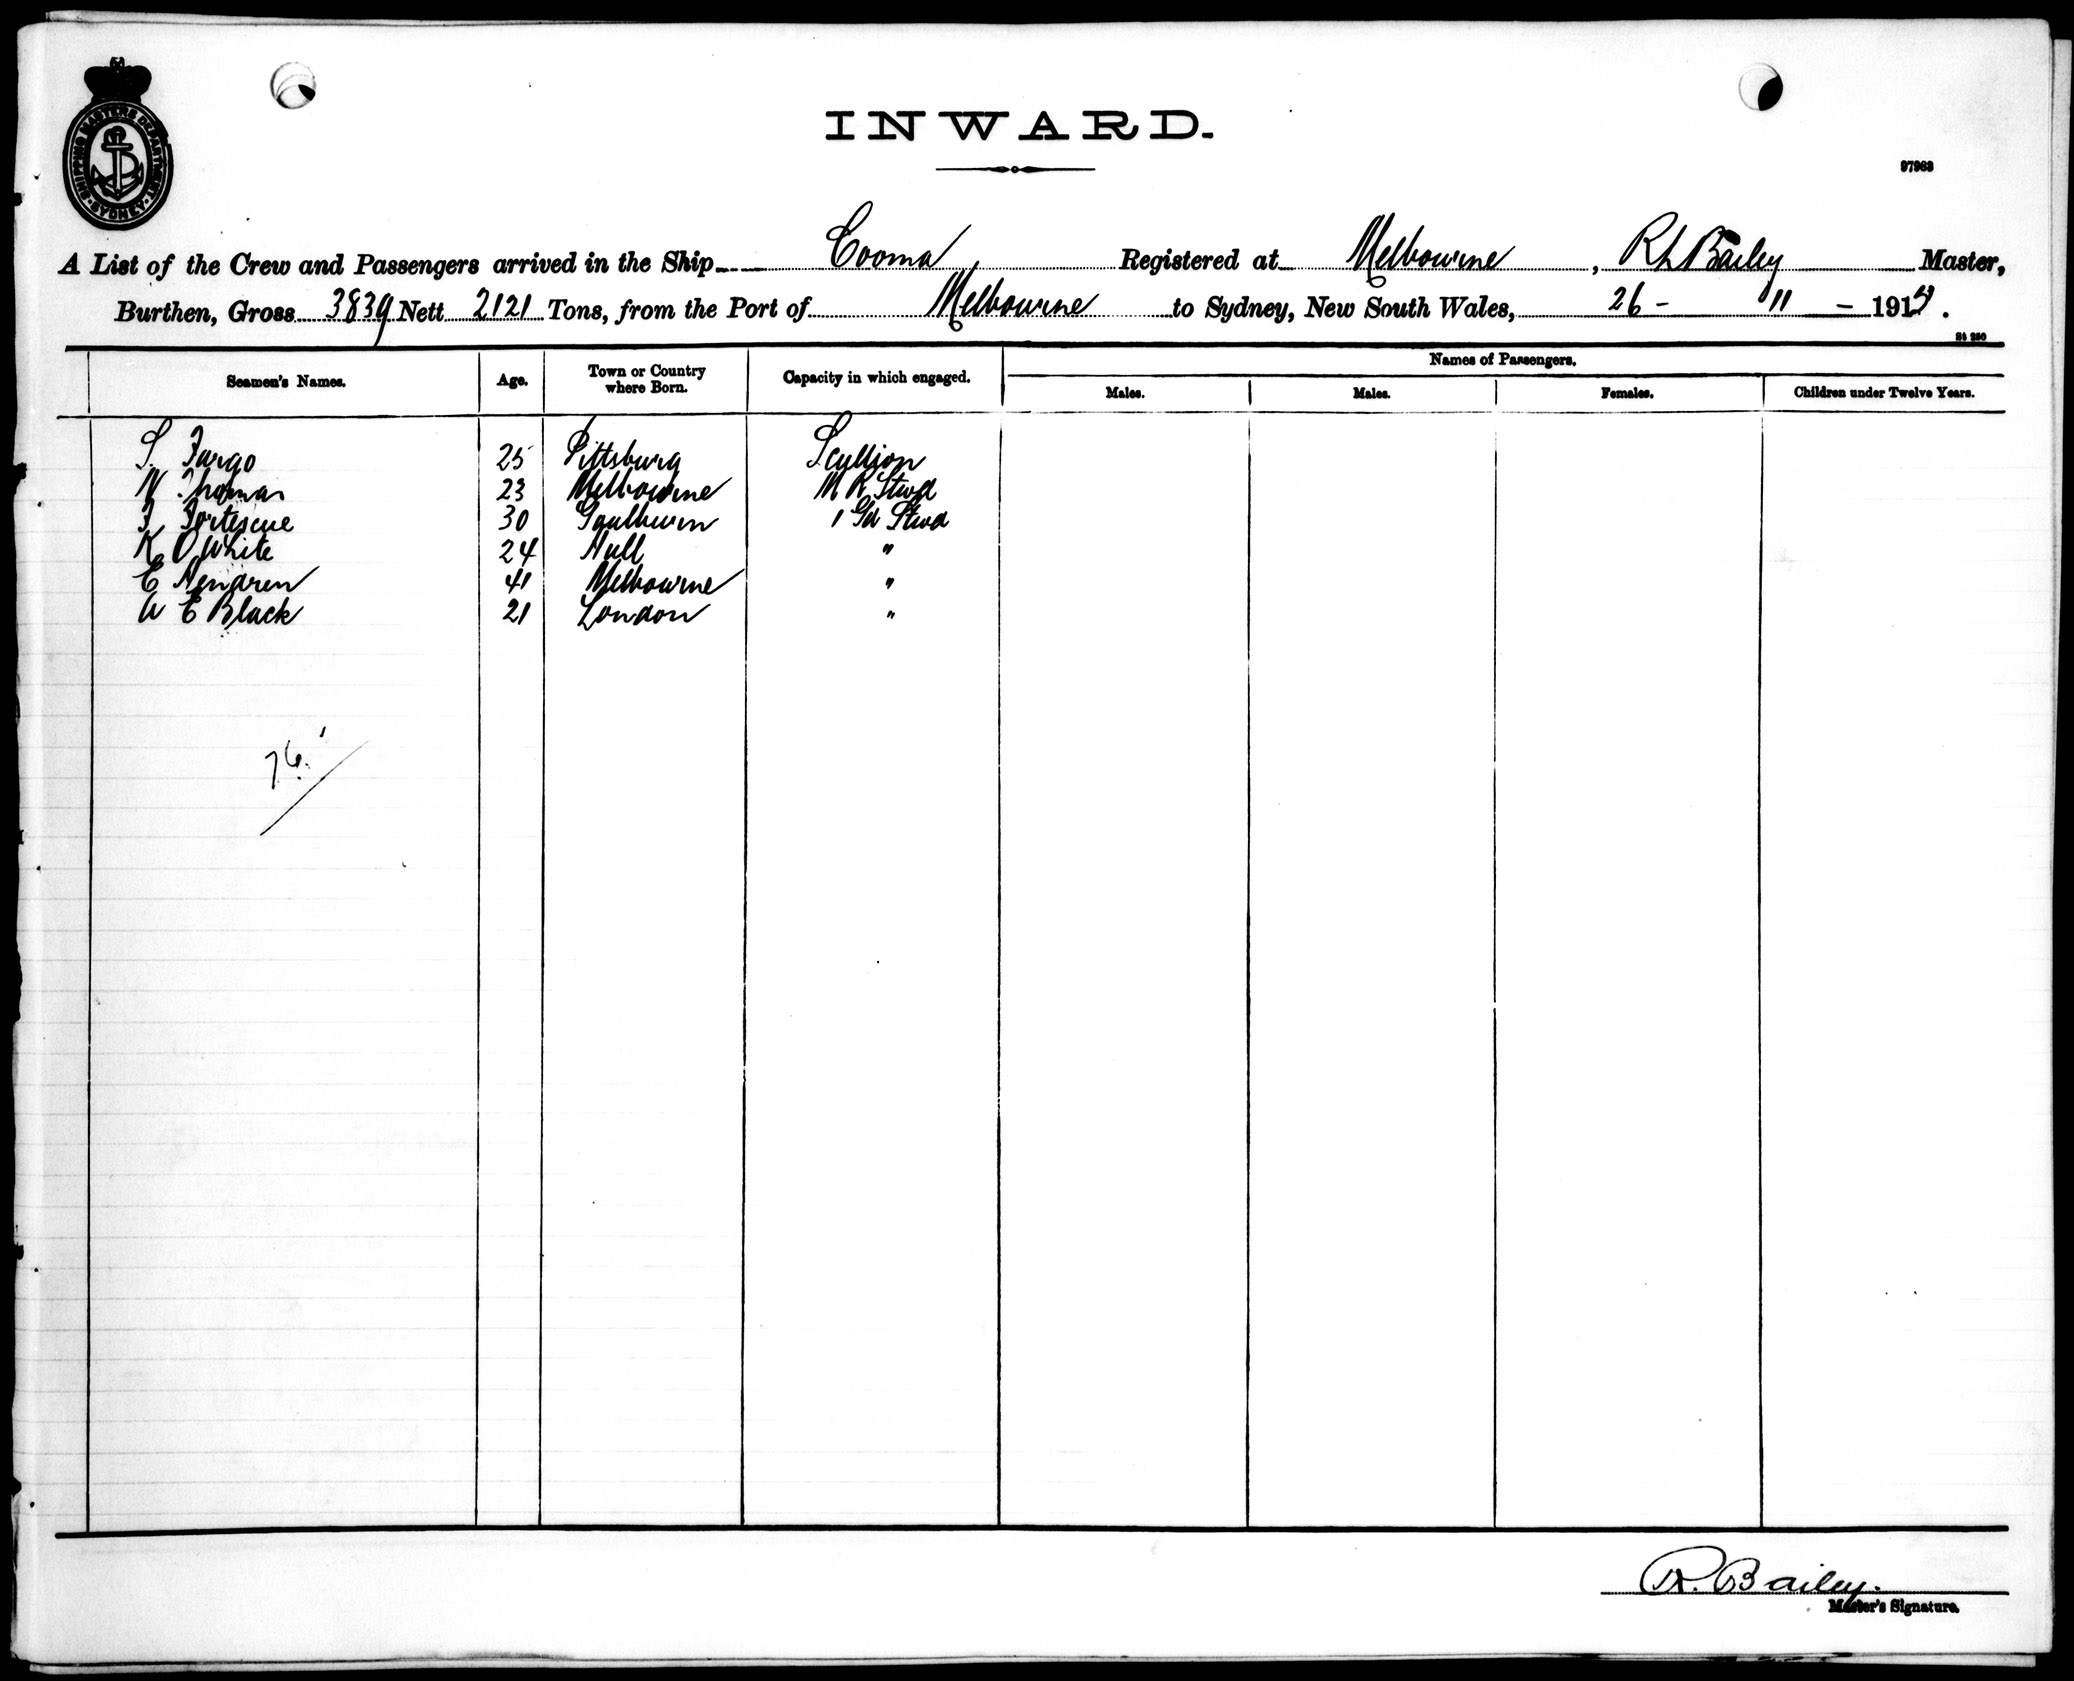 SHIPPING MASTERS DEPARTMENT
SYDNEY
INWARD.
97963
A List of the Crew and Passengers arrived in the Ship Cooma Registered at Melbourne, R L Bailey Master,
Burthen, Gross 3839 Nett 2121 Tons, from the Port of Melbourne to Sydney, New South Wales, 26 - 11 - 191
St 250
Seamen's Names. Age. Town or Country where Born. Capacity in which engaged. Names of Passengers.
Males. Males. Females. Children under Twelve Years.
S. Fargo 25 Pittsburg Scullion
Thomas 23 Melbourne M R Stwd
F Fortescue 30 Goulburn 1 Gd Stwd
K O White 24 Hull "
E Hendren 41 Melbourne "
W E Black 21 London "
76
R. Bailey.
Master's Signature.